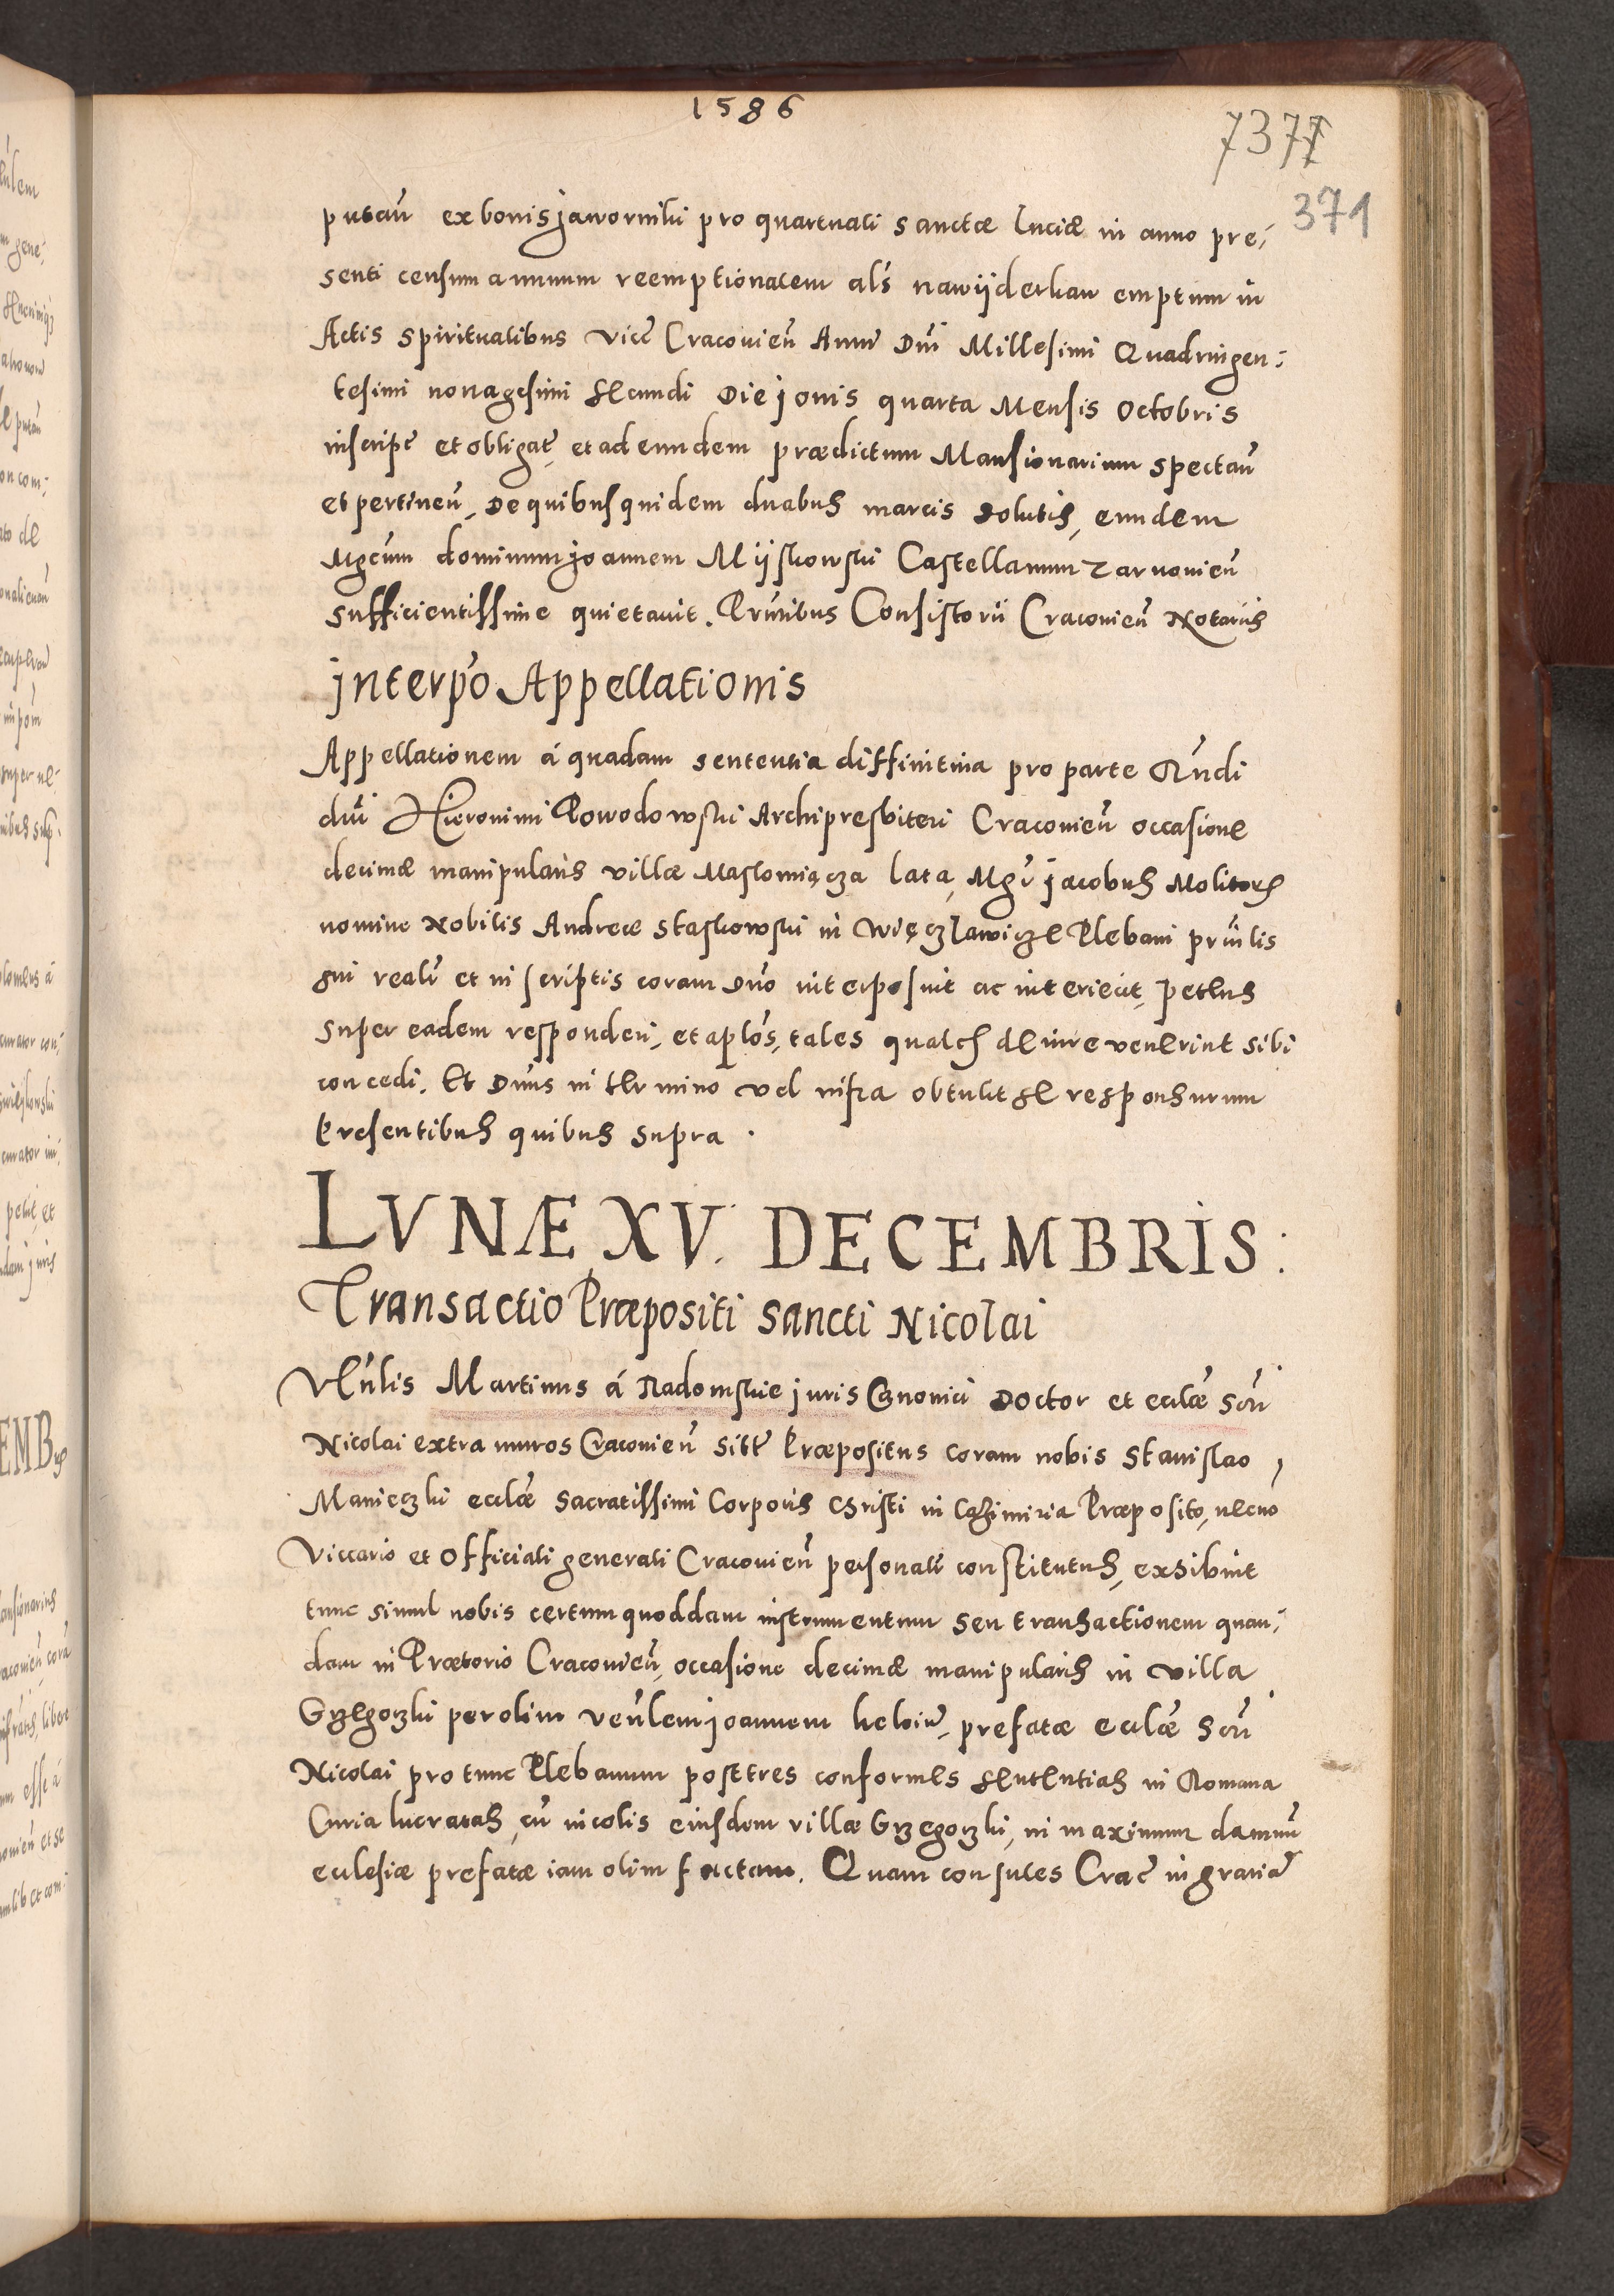 1586
737
371
putań ex bonis jawornihi pro quartuali sanctæ luciæ in anno pre-
senti censum annuum reemptionalem als nawijderkaw emptum in
Actis spiritualibus Vice Cracovień Anno Dñi Millesimi Quadringen-
tesimi nonagesimi secundi Die jovis quarta Mensis Octobris
inscript et obligat, et ad eundem prædictum Mansionarium spectań
et pertineń, De quibus quidem duabus marcis solutis, eundem
Mgcum dominum joannem Mijskowski Castellanum zarnovień
sufficientissime quietavit. Prńtibus Consistorii Cracovień Notariis
jnterpo Appellationis
Appellationem á quadam sententia diffinitiva pro parte Rńdi
dñi Hieronimi Powodowski Archipresbiteri Cracovień occasione
decimæ manipularis villæ Maslomiącza lata, Mgr jacobus Molitoris
nomine Nobilis Andreæ Staskowski in Więczlawicze Plebani prinlis
sui realr et in scriptis coram Dno interposuit ac interiecit, petens
super eadem responderi, et aplós, tales quales de iure venerint sibi
concedi. Et Dñus in termino vel infra obtulit se responsurum
Presentibus quibus supra.
LVNÆ XV. DECEMBRIS:
Transactio Præpositi sancti Nicolai
Veńlis Martinus á Radomskie juris Canonici Doctor et ecclæ Scti
Nicolai extra muros Cracovień sitæ Præpositus coram nobis Stanislao
Manieczki ecclæ sacratissimi Corporis Christi in Cazimiria Præposito, necno
Viccario et Officiali generali Cracovień personalr constitutus, exhibuit
tunc simul nobis certum quoddam instrumentum seu transactionem quan-
dam in Prætorio Cracovień, occasione decimæ manipularis in villa
Grzegorzki per olim venlem joannem, prefatæ ecclæ Scti
Nicolai pro tunc Plebanum post tres conformes sententias in Romana
Curia lucratas, cu incolis eiusdem villæ Grzegorzki, in maximum damnu
ecclesiæ prefatæ iam olim factam. Quam consules Crac in gratia